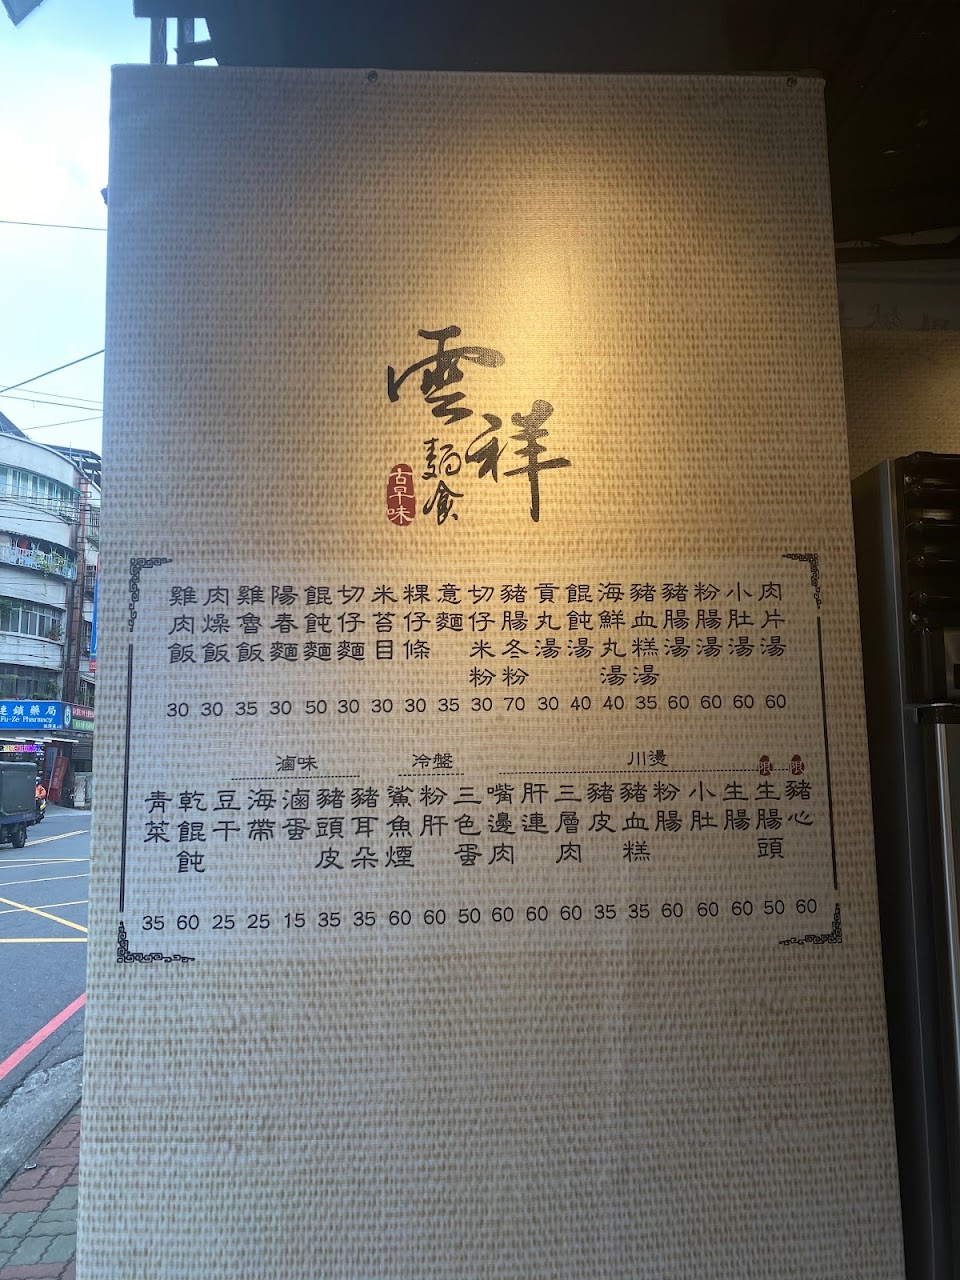 雲祥
麵食
古早味
雞肉飯
肉燥飯
雞魯飯
陽春麵
餛飩麵
切仔麵
米苔目
粿仔條
意麵
切仔米粉
豬腸冬粉
貢丸湯
餛飩湯
海鮮丸湯
豬血糕湯
豬腸湯
粉腸湯
小肚湯
肉片湯
30 30 35 30 50 30 30 30 35 30 70 30 40 40 35 60 60 60 60
滷味 冷盤 川燙
限 限
青菜
乾餛飩
豆干
海帶
滷蛋
豬頭皮
豬耳朵
鯊魚煙
粉肝
三色蛋
嘴邊肉
肝連
三層肉
豬皮
豬血糕
粉腸
小肚
生腸
生腸頭
豬心
35 60 25 25 15 35 35 60 60 50 60 60 60 35 35 60 60 60 50 60
連鎖藥局
Fu-Ze Pharmacy